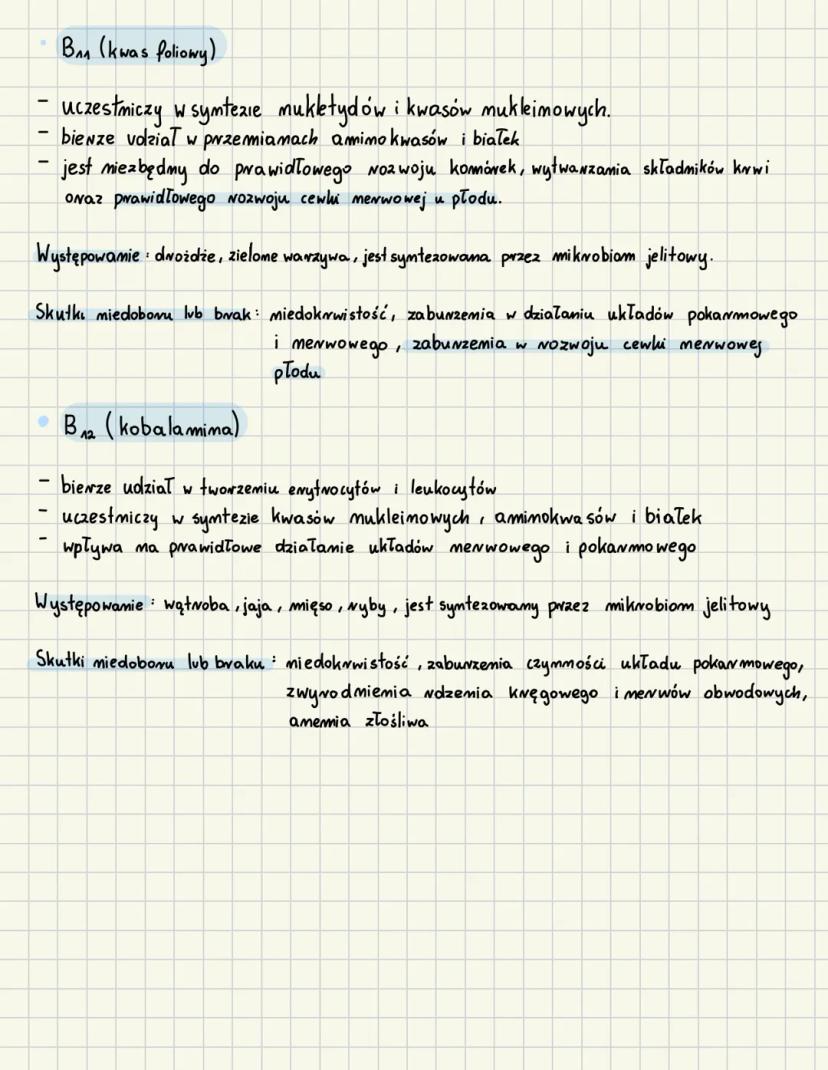 B₁₁ (kwas foliowy)
- uczestniczy w syntezie nukletydów i kwasów nukleinowych.
- bierze udział w przemianach aminokwasów i białek
- jest niezbędny do prawidłowego rozwoju komórek, wytwarzania składników krwi
oraz prawidłowego rozwoju cewki nerwowej u płodu.
Występowanie: drożdże, zielone warzywa, jest syntezowana przez mikrobiom jelitowy.
Skutki niedoboru lub brak: niedokrwistość, zaburzenia w działaniu układów pokarmowego
i nerwowego, zaburzenia w rozwoju cewki nerwowej
płodu
B₁₂ (kobalamina)
- bierze udział w tworzeniu erytrocytów i leukocytów
- uczestniczy w syntezie kwasów nukleinowych, aminokwasów i białek
- wpływa na prawidłowe działanie układów nerwowego i pokarmowego
Występowanie: wątroba, jaja, mięso, ryby, jest syntezowany przez mikrobiom jelitowy
Skutki niedoboru lub braku: niedokrwistość, zaburzenia czynności układu pokarmowego,
zwyrodnienia rdzenia kręgowego i nerwów obwodowych,
anemia złośliwa